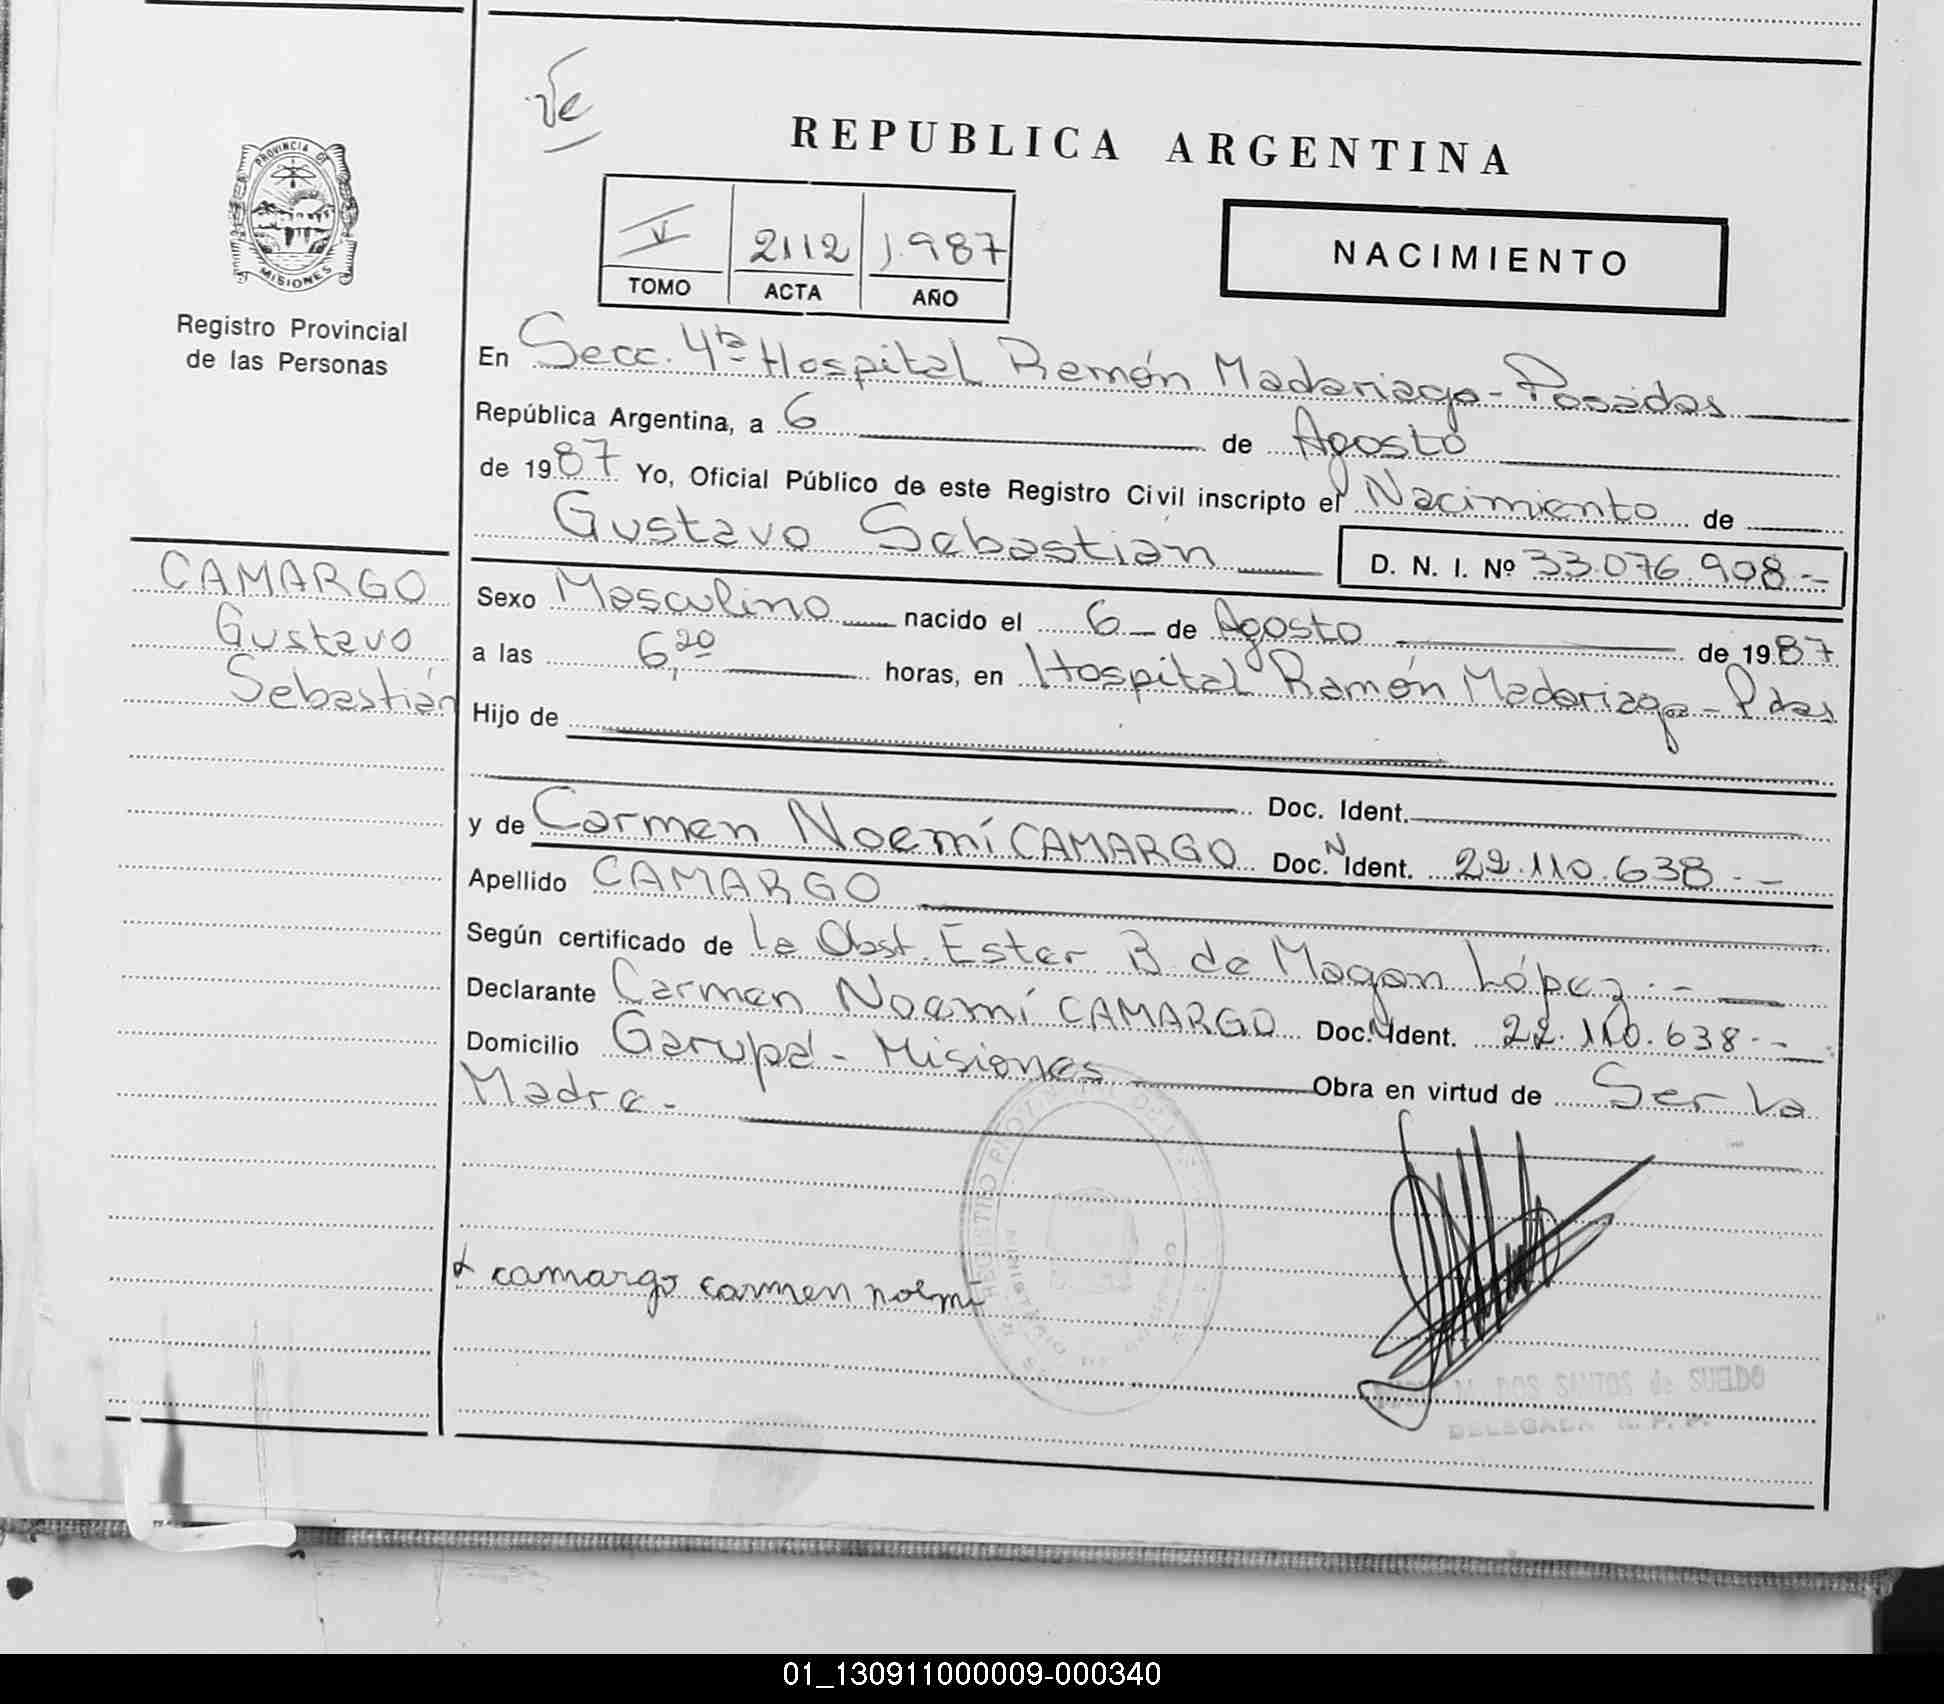 Ve
REPUBLICA ARGENTINA
PROVINCIA DE
MISIONES
Registro Provincial
de las Personas
V 2112 1.987
TOMO ACTA AÑO
NACIMIENTO
En Secc. 4ta Hospital Ramón Madariaga - Posadas
República Argentina, a 6 de Agosto
de 1987 Yo, Oficial Público de este Registro Civil inscripto el Nacimiento de
Gustavo Sebastián D. N. I. Nº 33.076.908.-
CAMARGO
Gustavo
Sebastián
Sexo Masculino nacido el 6 de Agosto de 1987
a las 6,20 horas, en Hospital Ramón Madariaga - Pdas
Hijo de
Doc. Ident.
y de Carmen Noemí CAMARGO Doc. N Ident. 22.110.638.-
Apellido CAMARGO
Según certificado de la Obst. Ester B. de Magan López.-
Declarante Carmen Noemí CAMARGO Doc. N Ident. 22.110.638.-
Domicilio Garupá - Misiones Obra en virtud de Ser la
Madre -
REGISTRO PROVINCIAL DE LAS
MINISTERIO DE GOBIERNO
camargo carmen noemi
M. DOS SANTOS de SUELDO
DELEGADA R. P. P.
01_130911000009-000340